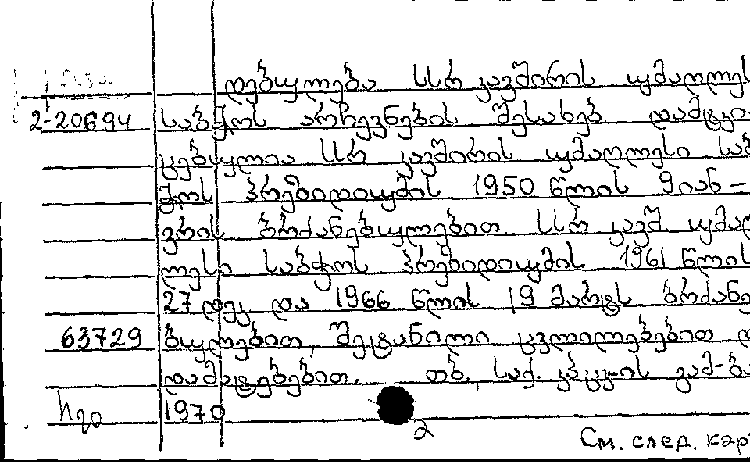 დებულება სსრ კავშირის უმაღლეს
2-20694 საბჭოს არჩევნების შესახებ დამტკი-
ცებულია სსრ კავშირის უმაღლესი საბ
ჭოს პრეზიდიუმის 1950 წლის 9 იან-
ვრის ბრძანებულებით. სსრ კავშ. უმაღ
ლესი საბჭოს პრეზიდიუმის 1961 წლის
27 დეკ. და 1966 წლის 19 მარტს ბრძანე
63729 ბულებით შეტანილი ცვლილებებით დ
დამატებებით. თბ., საქ. კპ ცკ-ის გამ-ბა
1970
2
См. след. кар